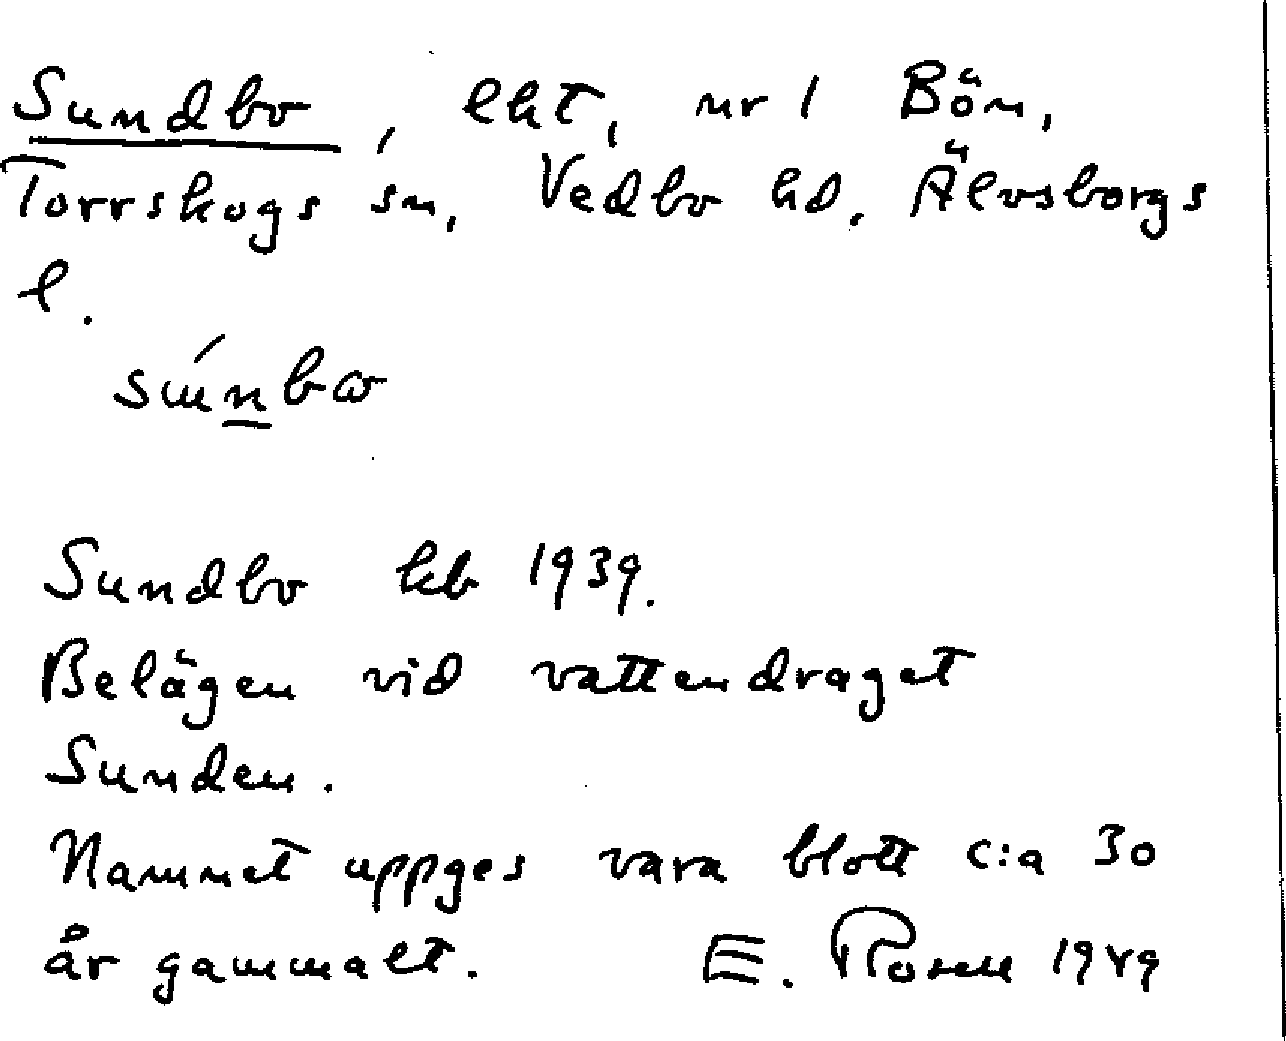 Sundbo, lht, nr 1 Bön,
Torrskogs sn, Vedbo hd, Älvsborgs
l.
súnbω
Sundbo kb 1939.
Belägen vid vattendraget
Sunden.
Namnet uppges vara blott c:a 30
år gammalt. E. Rosell 1949